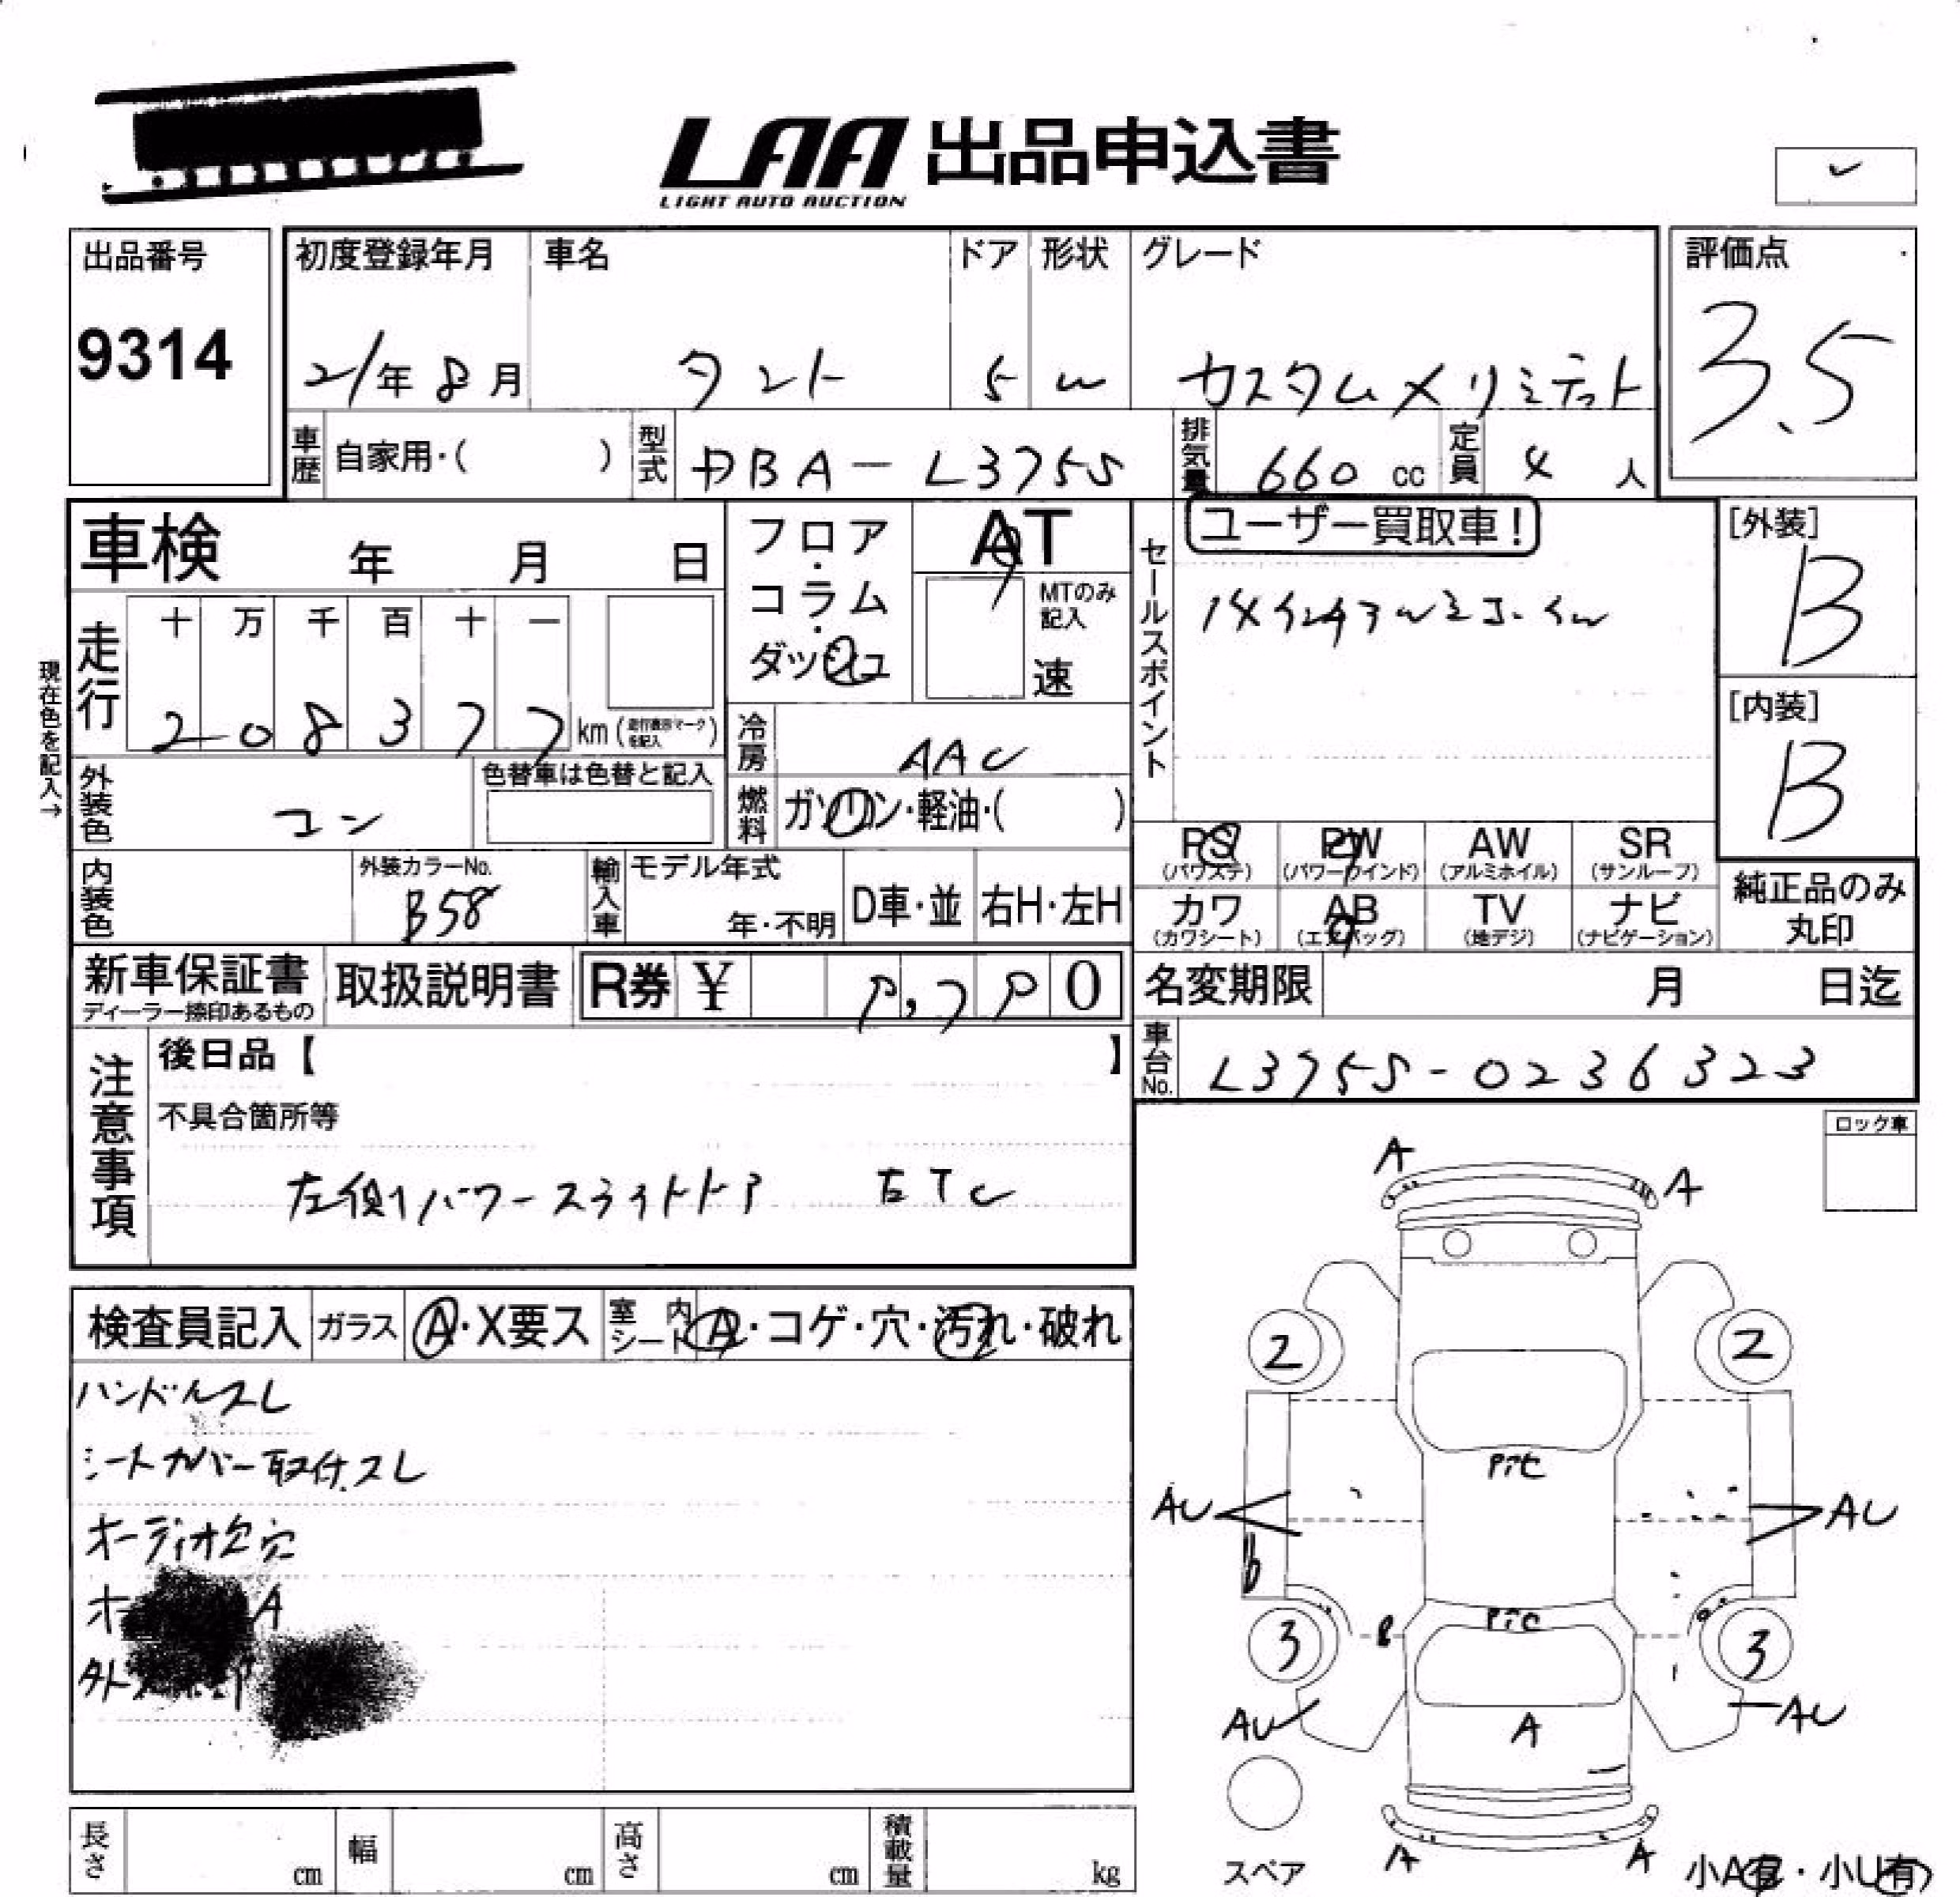 LAA 出品申込書
LIGHT AUTO AUCTION
出品番号
9314
初度登録年月 車名 ドア 形状 グレード
21年 8月 タント 5 W カスタムXリミテット
評価点
3.5
車歴 自家用・( ) 型式 DBA-L375S 排気量 660 cc 定員 4 人
車検 年 月 日
フロア・コラム・ダッシュ
AT
MTのみ記入
速
走行 十 万 千 百 十 一
2 0 8 3 7 7 km (走行表示マークを記入)
現在色を記入→
外装色 コン 色替車は色替と記入
冷房 AAC
燃料 ガソリン・軽油・( )
内装色 外装カラーNo. B58
輸入車 モデル年式 年・不明 D車・並 右H・左H
セールスポイント
ユーザー買取車!
[外装]
B
[内装]
B
PS (パワステ) PW (パワーウインド) AW (アルミホイル) SR (サンルーフ)
カワ (カワシート) AB (エアバッグ) TV (地デジ) ナビ (ナビゲーション)
純正品のみ丸印
新車保証書 ディーラー捺印あるもの 取扱説明書 R券 ¥ 0
名変期限 月 日迄
車台No. L375S-0236323
注意事項
後日品【 】
不具合箇所等
左側パワースライドドア ETC
ロック車
検査員記入 ガラス A・X要ス 室内シート A・コゲ・穴・汚れ・破れ
ハンドルスレ
シートカバー取付.スレ
オーディオ欠穴
A A
2 2
PTC
AU AU
b
PTC
3 B 3
AU AU
A
A A
スペア
小A有・小U有
長さ cm 幅 cm 高さ cm 積載量 kg